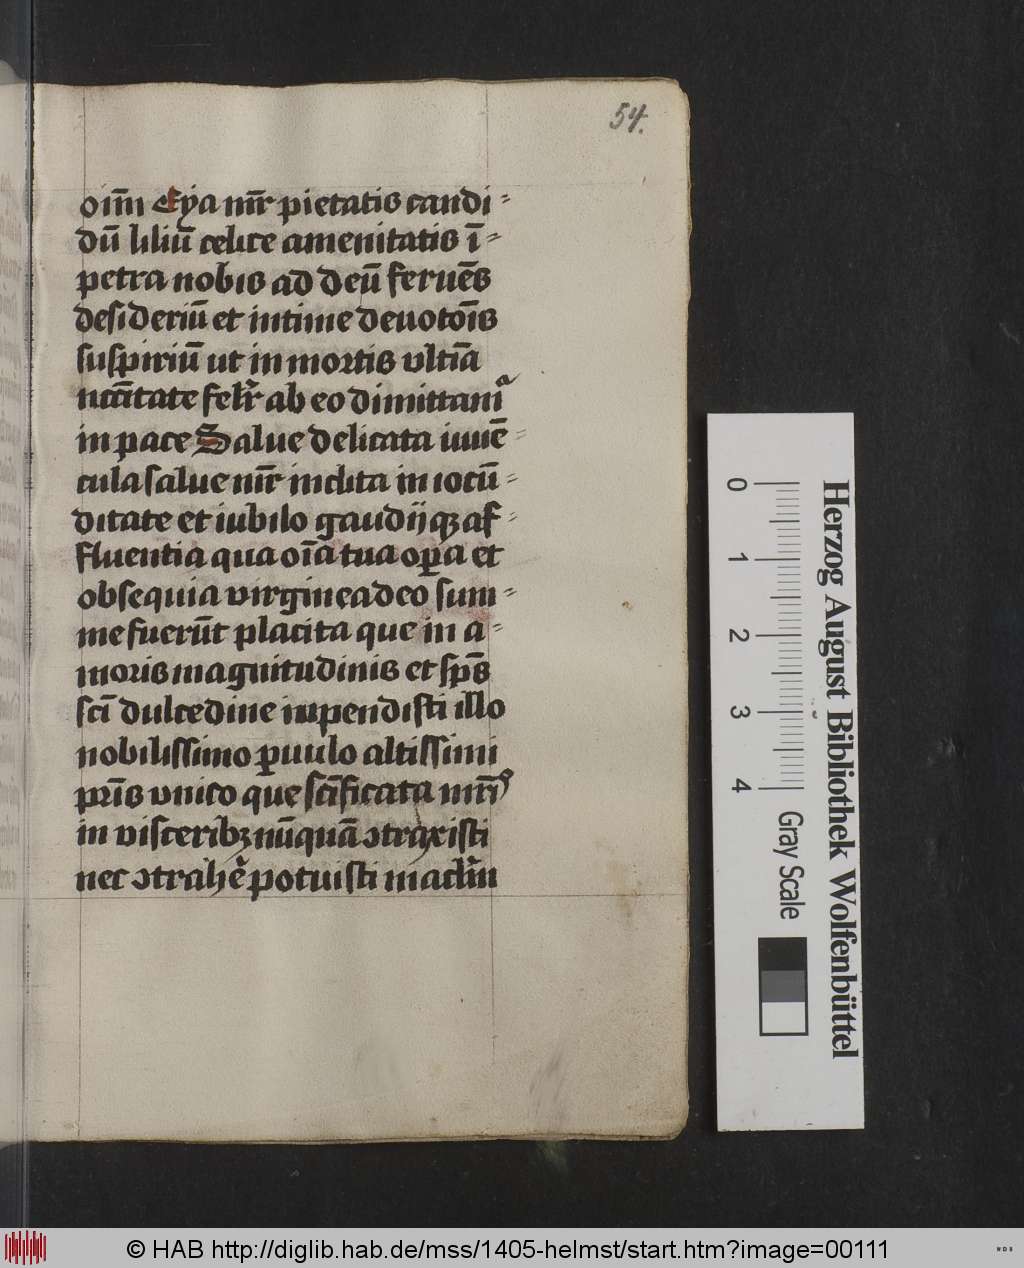 54.
oīm̄ Eya mr̄ pietatis candi-
dū liliū celice amenitatis ī-
petra nobis ad deū feruēs
desideriū et intime deuotōis
suspiriū ut in mortis vltīa
nccītate felr̄ ab eo dimittamᷓ
in pace Salue delicata iuuē-
cula salue mr̄ inclita in iocū-
ditate et iubilo gaudijqꝫ af-
fluentia qua oīa tua oꝑa et
obsequia virginea deo sum-
me fuerūt placita que in a-
moris magnitudinis et sp̄s
sc̄i dulcedine inpendisti illo
nobilissimo ꝑuulo altissimi
pr̄is vnico que sc̄ificata mr̄is
in visceribꝫ nūquā ↄtraxisti
nec ↄtrahe͛ potuisti maclām
Herzog August Bibliothek Wolfenbüttel
0 1 2 3 4
Gray Scale
© HAB http://diglib.hab.de/mss/1405-helmst/start.htm?image=00111